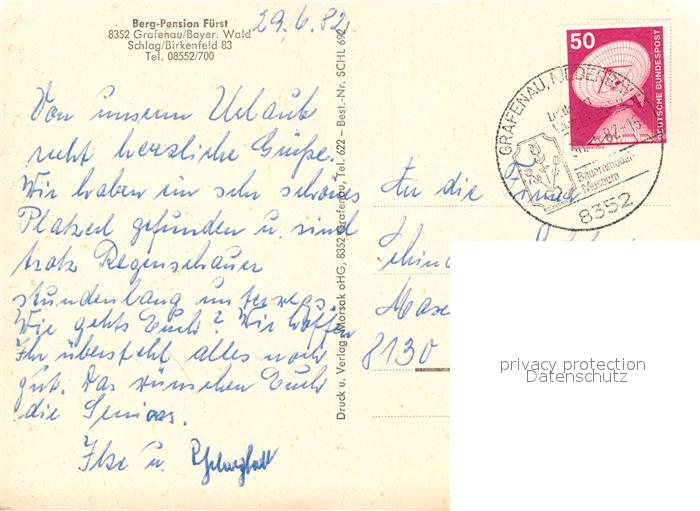 Berg-Pension Fürst
8352 Grafenau/Bayer. Wald
Schlag/Birkenfeld 83
Tel. 08552/700
29.6.82
Von unserem Urlaub
recht herzliche Grüße.
Wir haben ein sehr schönes
Platzerl gefunden u. sind
trotz Regenschauer
stundenlang unterwegs.
Wie gehts Euch? Wir hoffen
Ihr übersteht alles noch
gut. Das wünschen Euch
die Seniors.
Ilse u.
Druck u. Verlag Morsak oHG, 8352 Grafenau, Tel. 622 – Best.-Nr. SCHL 692
50
DEUTSCHE BUNDESPOST
GRAFENAU, NIEDERBAY
Bauernmöbel-
Museum
8352
An die Firma
8130
privacy protection
Datenschutz